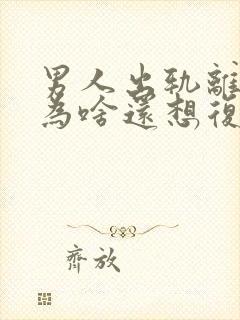 男人出軌離
為啥還想復
齊放